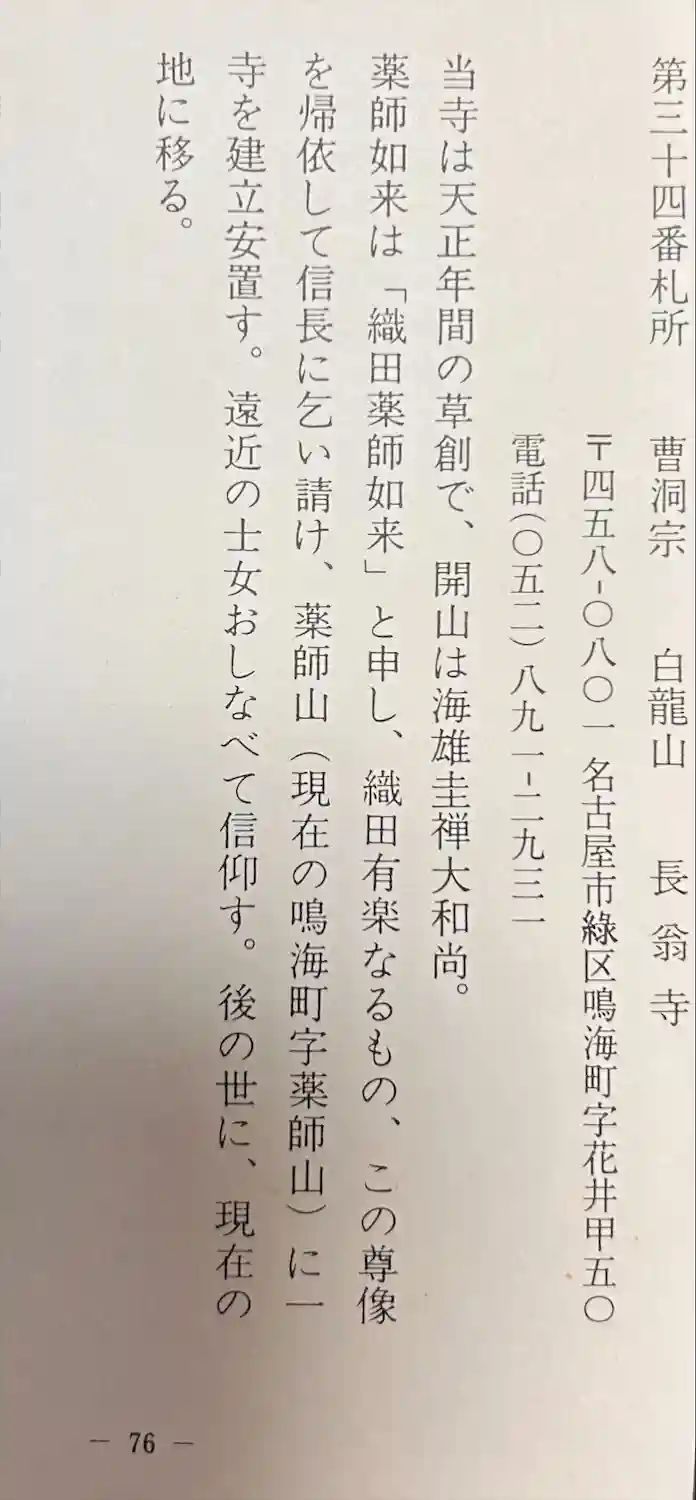 第三十四番札所　曹洞宗　白龍山　長翁寺
〒四五八-〇八〇一 名古屋市綠区鳴海町字花井甲五〇
電話(〇五二)八九一-二九三一
当寺は天正年間の草創で、開山は海雄圭禅大和尚。
薬師如来は「織田薬師如来」と申し、織田有楽なるもの、この尊像
を帰依して信長に乞い請け、薬師山(現在の鳴海町字薬師山)に一
寺を建立安置す。遠近の士女おしなべて信仰す。後の世に、現在の
地に移る。
— 76 —